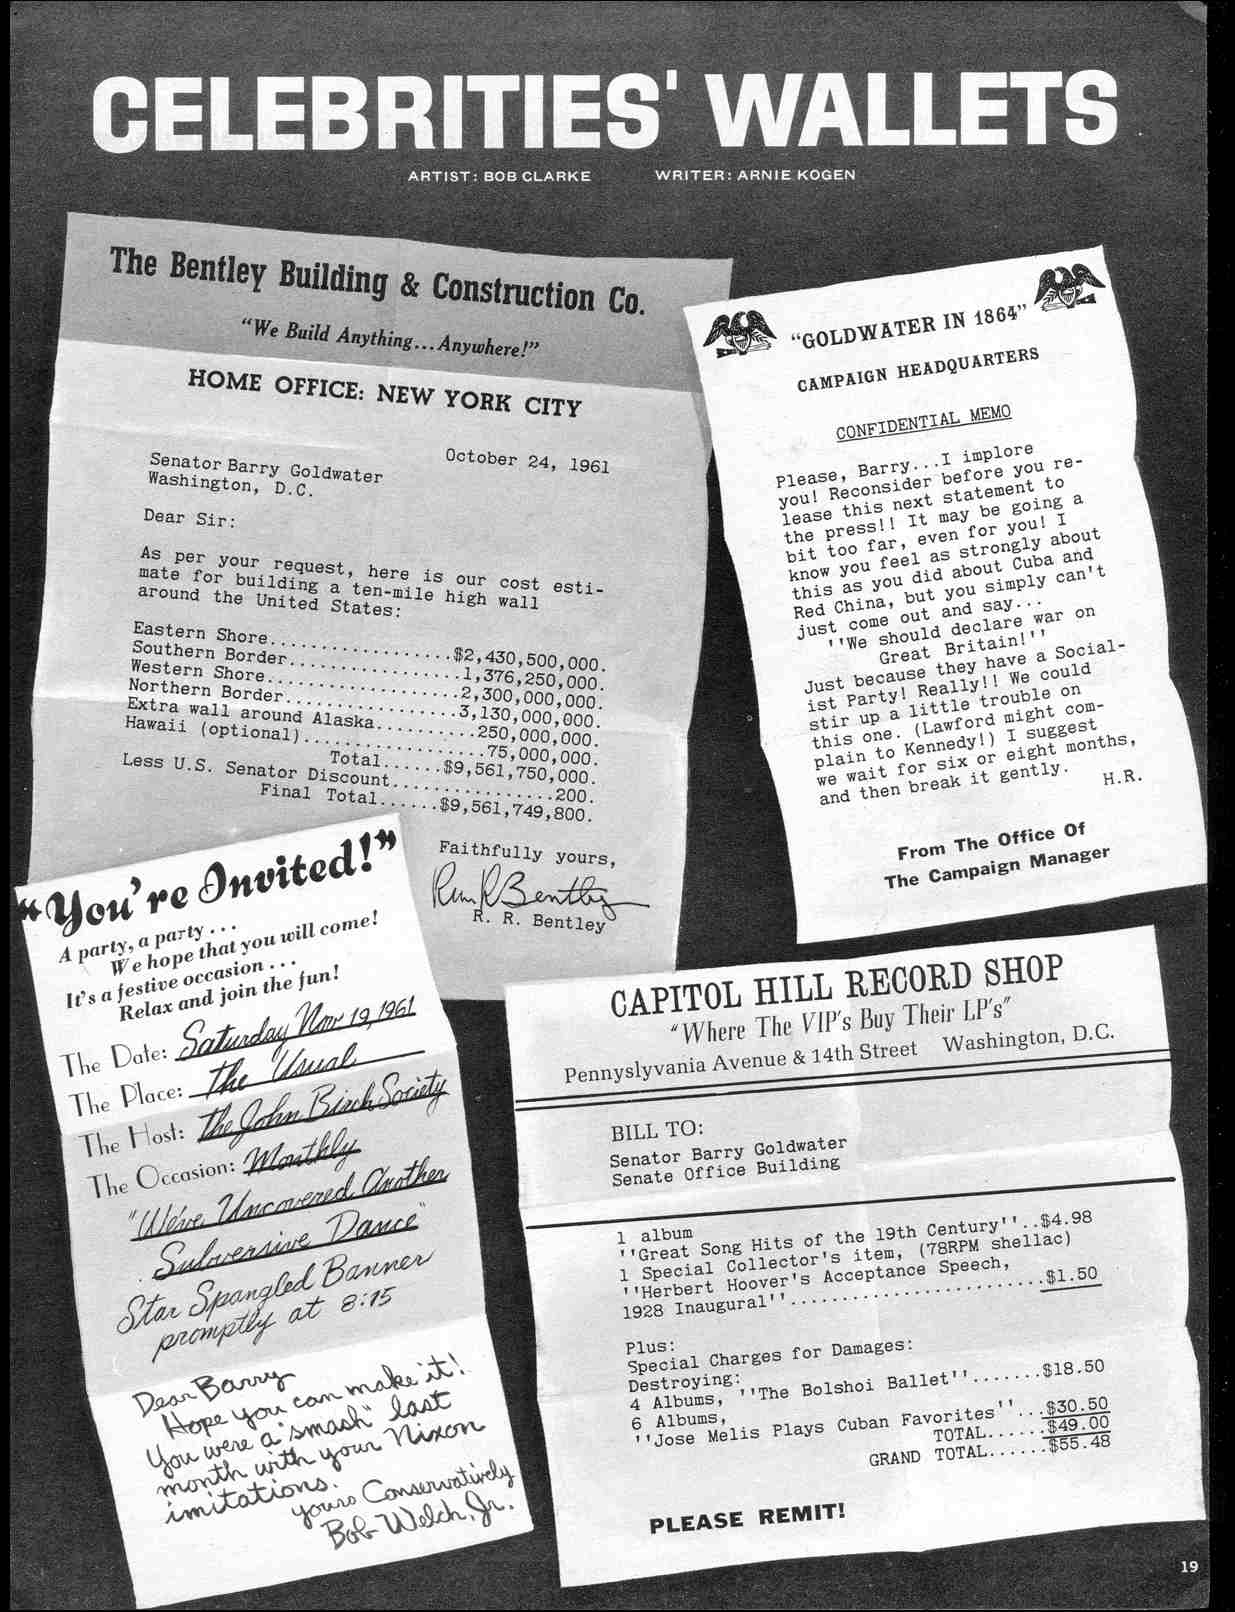 CELEBRITIES' WALLETS
ARTIST: BOB CLARKE WRITER: ARNIE KOGEN
The Bentley Building & Construction Co.
"We Build Anything...Anywhere!"
HOME OFFICE: NEW YORK CITY
October 24, 1961
Senator Barry Goldwater
Washington, D.C.
Dear Sir:
As per your request, here is our cost esti-
mate for building a ten-mile high wall
around the United States:
Eastern Shore..................$2,430,500,000.
Southern Border.................1,376,250,000.
Western Shore...................2,300,000,000.
Northern Border.................3,130,000,000.
Extra wall around Alaska..........250,000,000.
Hawaii (optional)..................75,000,000.
Total......$9,561,750,000.
Less U.S. Senator Discount................200.
Final Total......$9,561,749,800.
Faithfully yours,
R. R. Bentley
R. R. Bentley
"GOLDWATER IN 1864"
CAMPAIGN HEADQUARTERS
CONFIDENTIAL MEMO
Please, Barry...I implore
you! Reconsider before you re-
lease this next statement to
the press!! It may be going a
bit too far, even for you! I
know you feel as strongly about
this as you did about Cuba and
Red China, but you simply can't
just come out and say...
''We should declare war on
Great Britain!''
Just because they have a Social-
ist Party! Really!! We could
stir up a little trouble on
this one. (Lawford might com-
plain to Kennedy!) I suggest
we wait for six or eight months,
and then break it gently.
H.R.
From The Office Of
The Campaign Manager
"You're Invited!"
A party, a party...
We hope that you will come!
It's a festive occasion...
Relax and join the fun!
The Date: Saturday Nov 19, 1961
The Place: The Usual
The Host: The John Birch Society
The Occasion: Monthly
"We've Uncovered Another
Subversive Dance"
Star Spangled Banner
promptly at 8:15
Dear Barry
Hope you can make it!
You were a "smash" last
month with your Nixon
imitations.
yours Conservatively
Bob Welch, Jr.
CAPITOL HILL RECORD SHOP
"Where The VIP's Buy Their LP's"
Pennyslyvania Avenue & 14th Street Washington, D.C.
BILL TO:
Senator Barry Goldwater
Senate Office Building
1 album
''Great Song Hits of the 19th Century''..$4.98
1 Special Collector's item, (78RPM shellac)
''Herbert Hoover's Acceptance Speech,
1928 Inaugural''........................$1.50
Plus:
Special Charges for Damages:
Destroying:
4 Albums, ''The Bolshoi Ballet''.......$18.50
6 Albums,
''Jose Melis Plays Cuban Favorites''...$30.50
TOTAL......$49.00
GRAND TOTAL......$55.48
PLEASE REMIT!
19